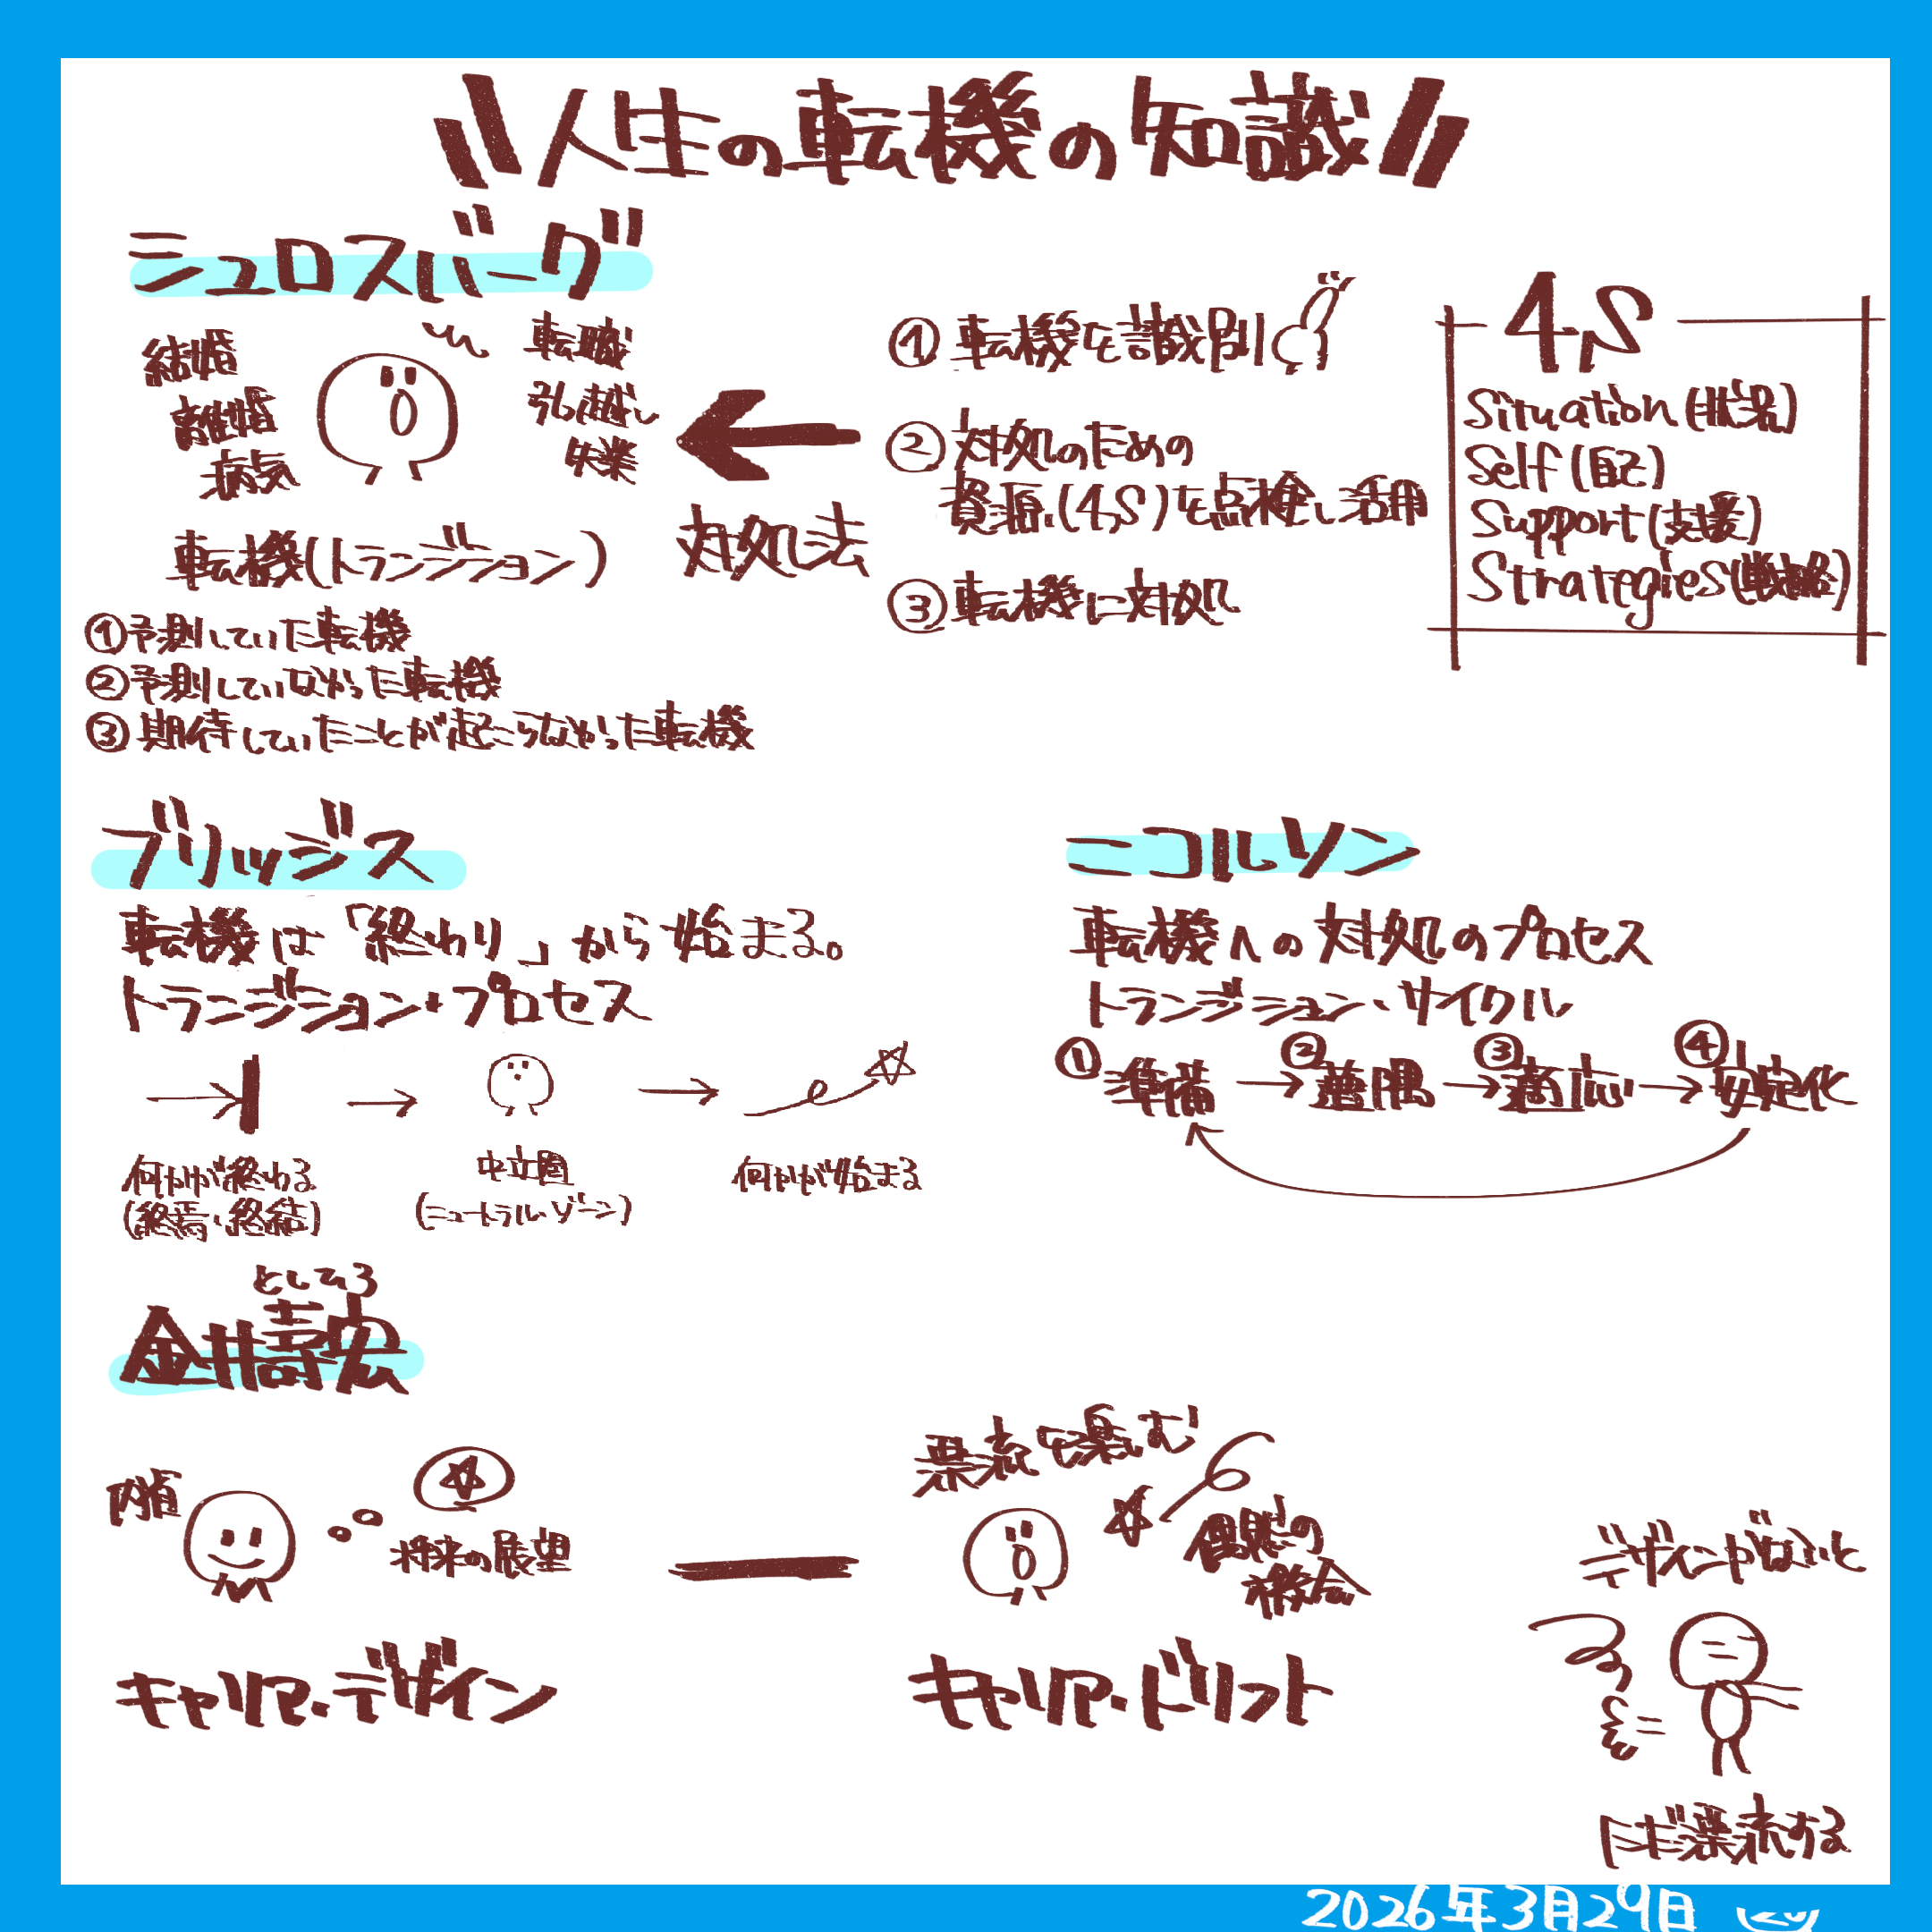 人生の転機の知識
シュロスバーグ
結婚
離婚
病気
転職
引っ越し
失業
転機(トランジション)
対処法
①予測していた転機
②予測していなかった転機
③期待していたことが起こらなかった転機
①転機を識別
②対処のための
資源(4S)を点検し活用
③転機に対処
4S
Situation(状況)
Self(自己)
Support(支援)
Strategies(戦略)
ブリッジス
転機は「終わり」から始まる。
トランジション・プロセス
何かが終わる
(終焉・終結)
中立圏
(ニュートラル・ゾーン)
何かが始まる
ニコルソン
転機への対処のプロセス
トランジション・サイクル
①準備→②遭遇→③適応→④安定化
としひろ
金井壽宏
内省
将来の展望
キャリア・デザイン
漂流を楽しむ
偶然の
機会
キャリア・ドリフト
デザインがないと
ただ漂流する
2026年3月29日